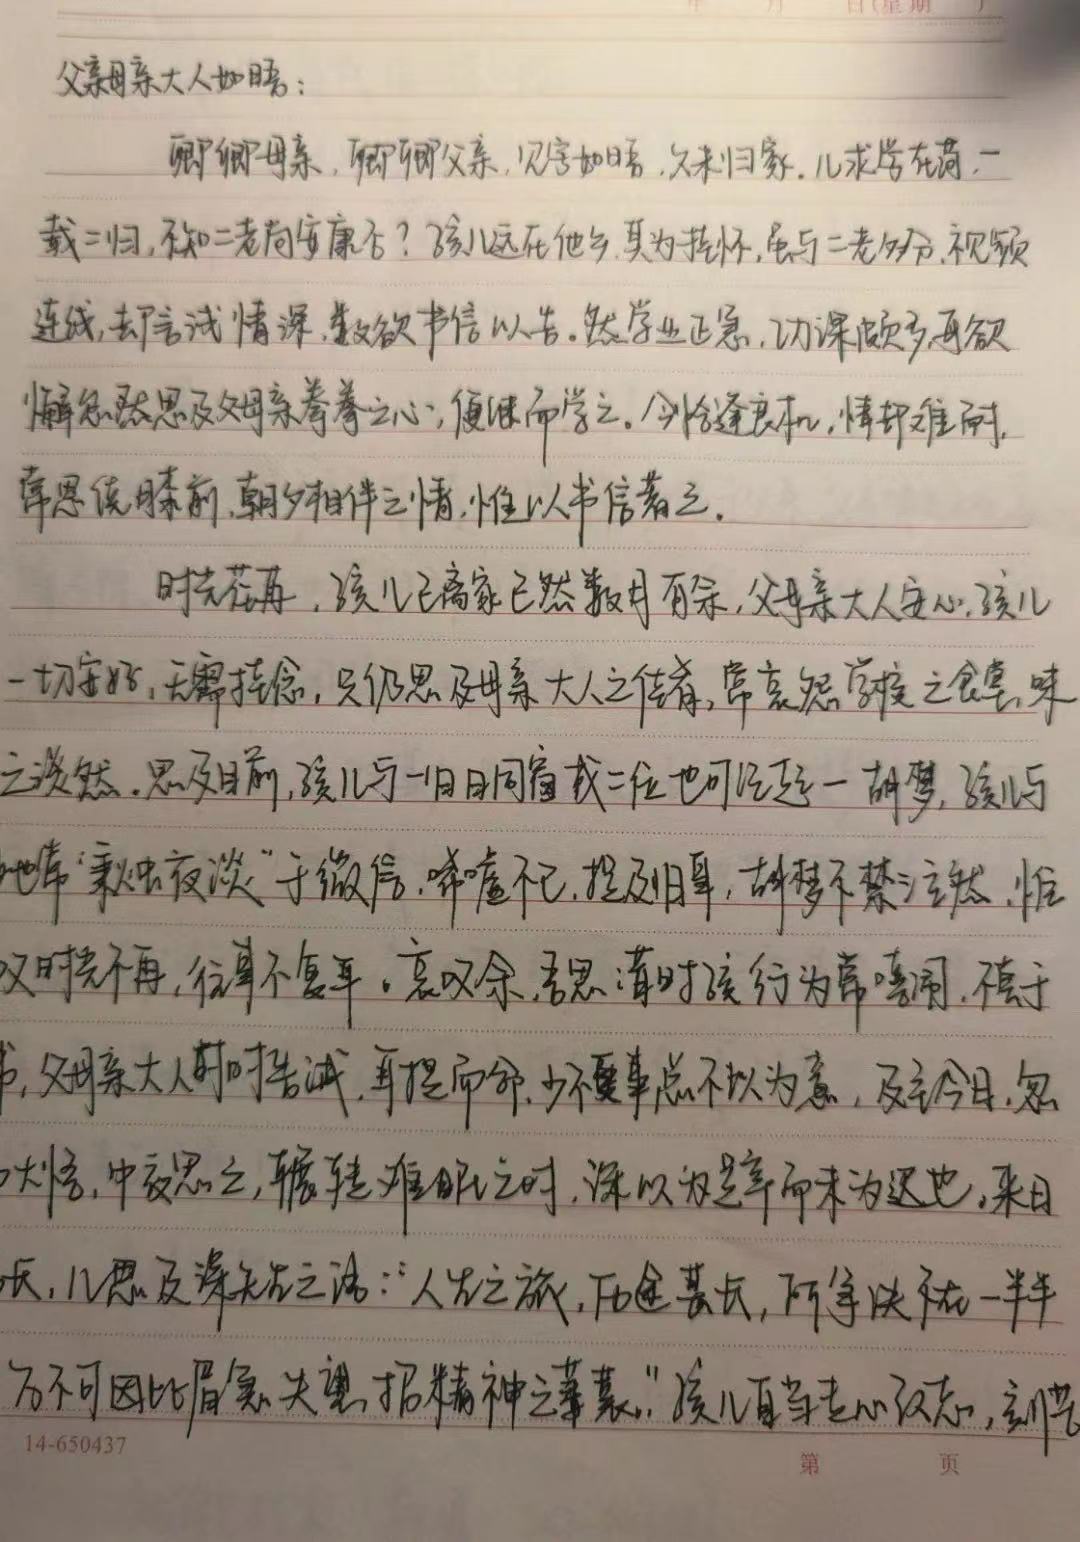 年 月 日(星期 )
父亲母亲大人如晤:
卿卿母亲,卿卿父亲,见字如晤,久未归家。儿求学在荷,一
载二归,不知二老尚安康否?孩儿远在他乡,甚为挂怀,虽与二老多分,视频
连线,却言浅情深,数欲书信以告。然学业正急,功课颇多,再欲
懈怠既思及父母亲拳拳之心,便继而学之。今恰逢良机,情却难耐,
常思绕膝前,朝夕相伴之情,惟以书信着之。
时光荏苒,孩儿已离家已然数月有余,父母亲大人安心,孩儿
一切安好,无需挂念,只仍思及母亲大人之佳肴,常哀怨学校之食堂,味
之淡然。思及目前,孩儿与一旧日同窗或二位也可 一胡梦,孩儿与
她常“秉烛夜谈”于微信,唏嘘不已,提及旧事,胡梦不禁泫然,惟
叹时光不再,往事不复耳。哀叹余,吾思昔时孩行为常嘻闹,不喜于
书,父母亲大人时时告诫,耳提而命,少不更事总不以为意,及至今日,忽
大悟,中夜思之,辗转难眠之时,深以为是幸而未为迟也,来日
长,儿思及 先生之语:“人生之旅,历途甚长,所争决不在一年半
万不可因此眉急失望招精神之萎衰。”孩儿自当走心 志,刻苦
14-650437
第 页